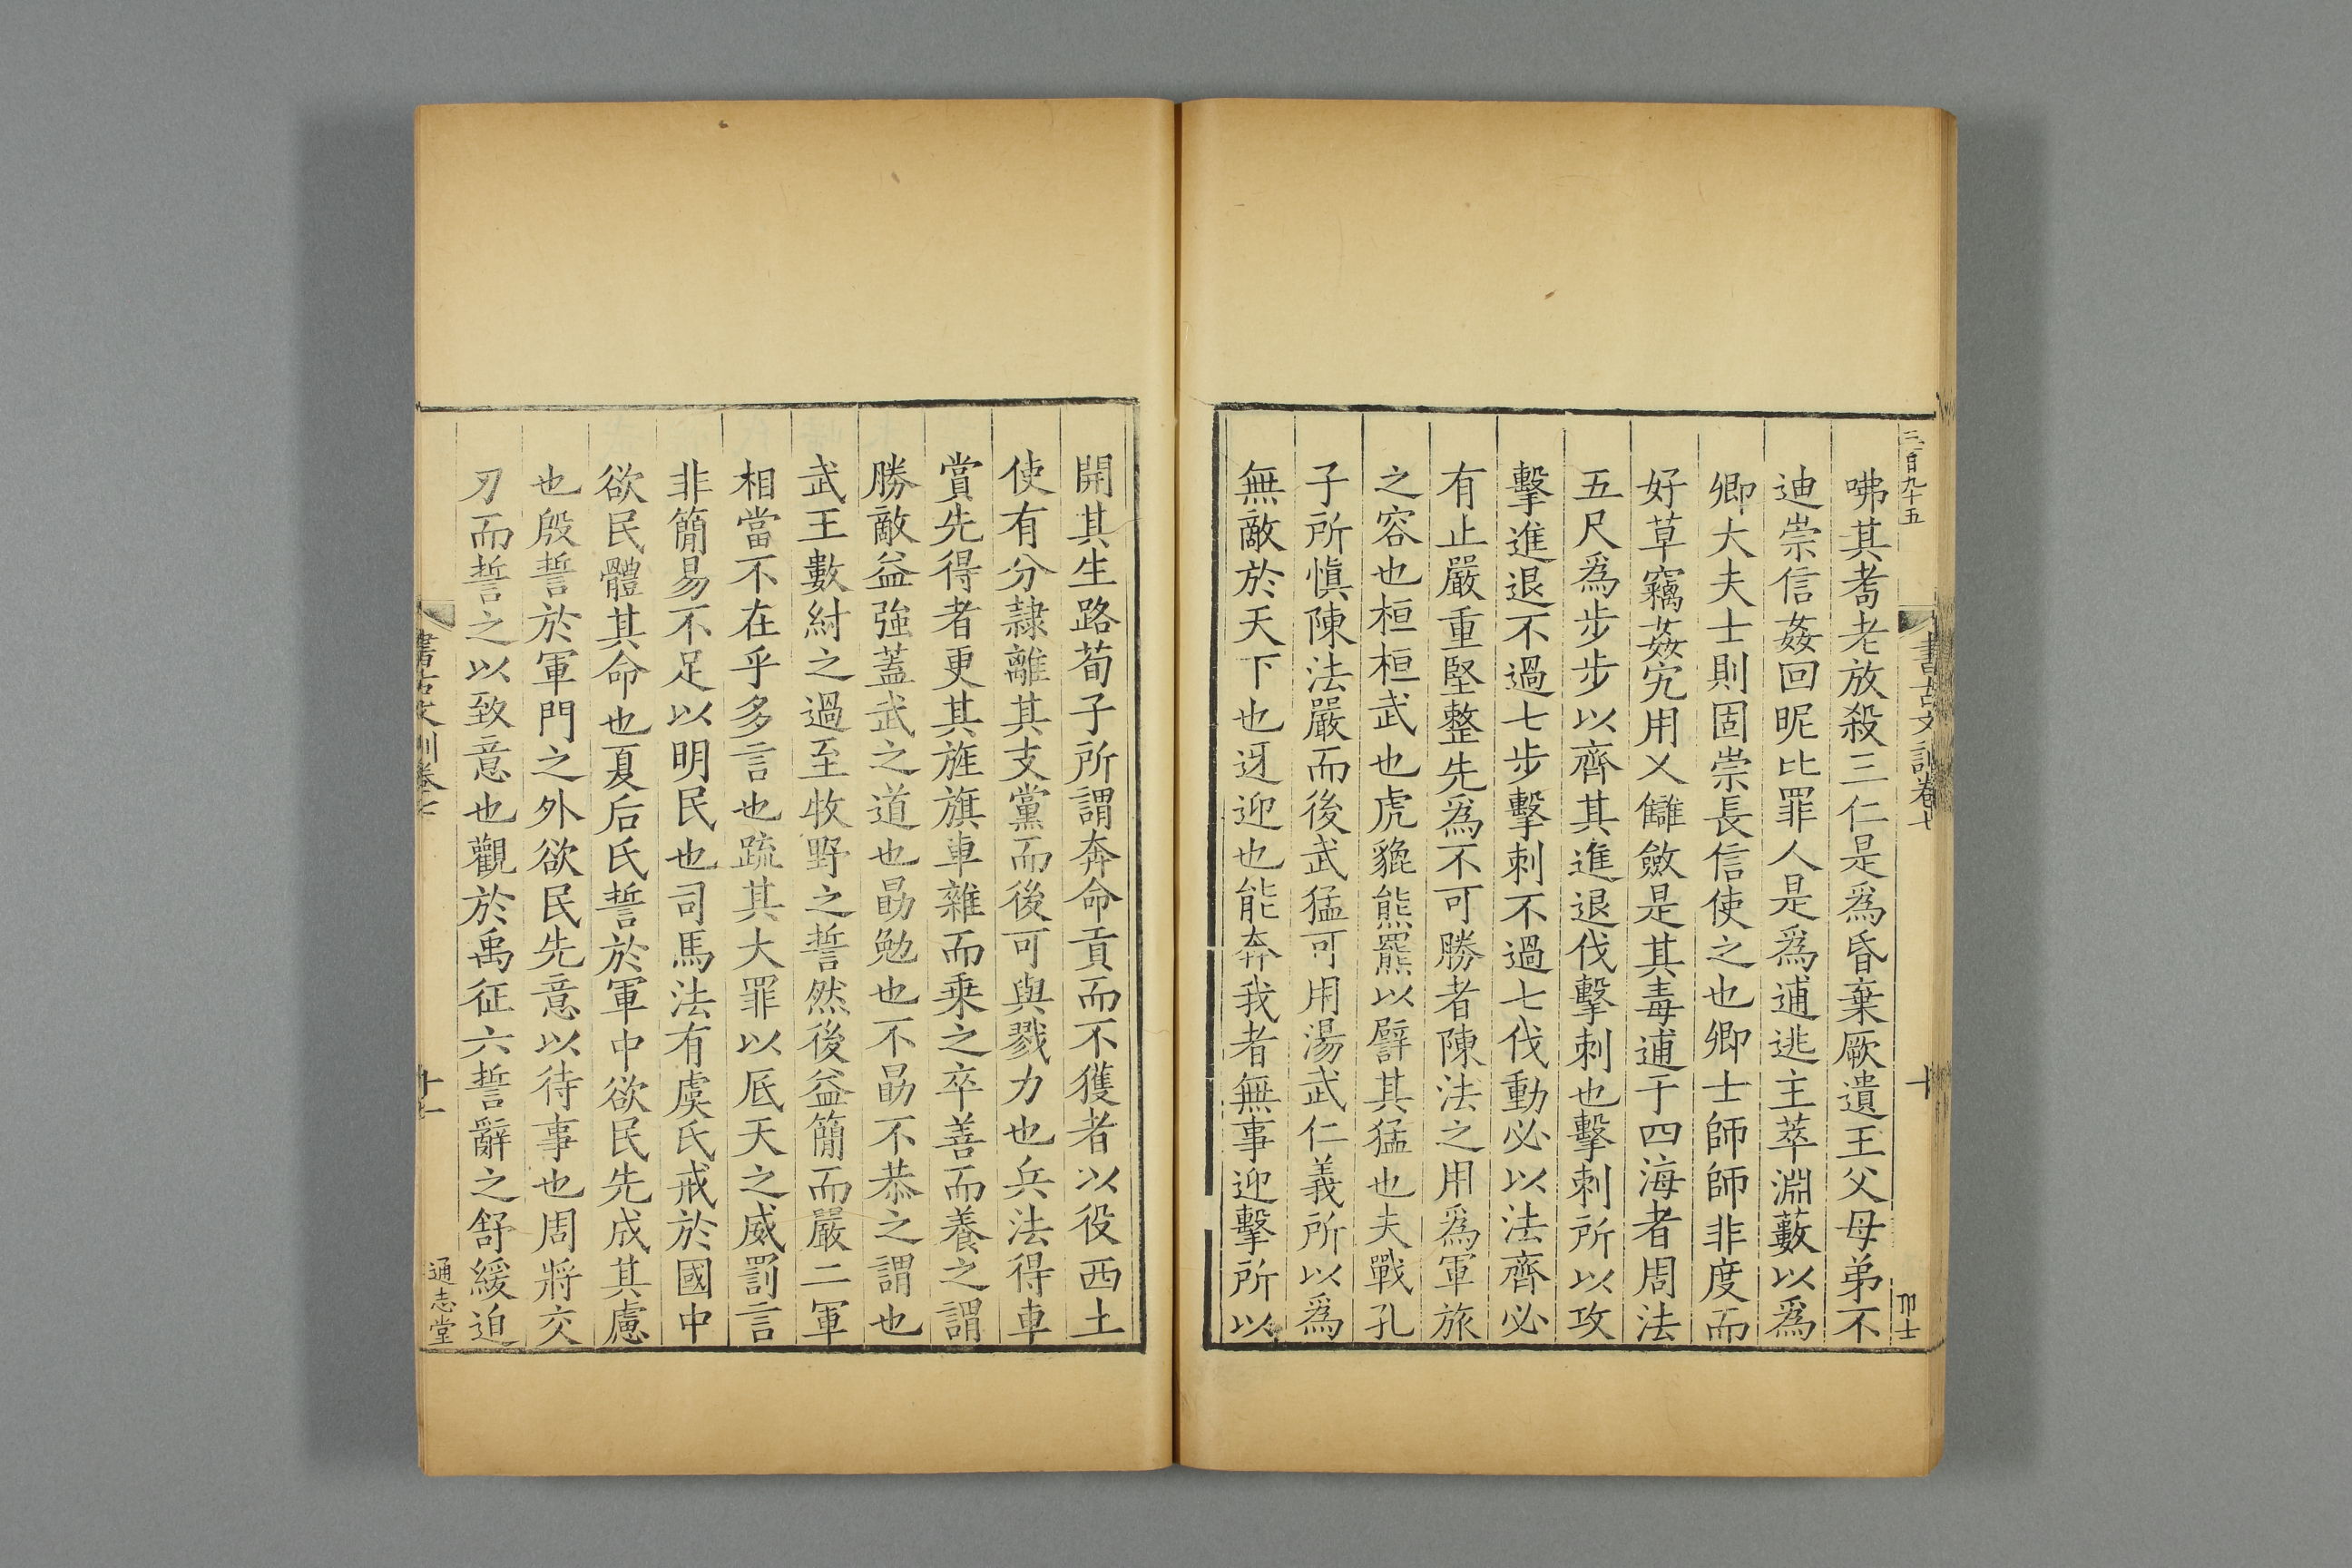 三百九十五
書古文訓卷七
十
咈其耇老放殺三仁是爲昏棄厥遺王父母弟不
迪崇信姦回昵比罪人是爲逋逃主萃淵藪以爲
卿大夫士則固崇長信使之也卿士師師非度而
好草竊姦宄用乂讎斂是其毒逋于四海者周法
五尺爲步步以齊其進退伐擊刺也擊刺所以攻
擊進退不過七步擊刺不過七伐動必以法齊必
有止嚴重堅整先爲不可勝者陳法之用爲軍旅
之容也桓桓武也虎貔熊羆以譬其猛也夫戰孔
子所愼陳法嚴而後武猛可用湯武仁義所以爲
無敵於天下也迓迎也能奔我者無事迎擊所以
開其生路荀子所謂奔命貢而不獲者以役西土
使有分隷離其支黨而後可與戮力也兵法得車
賞先得者更其旌旗車雜而乗之卒善而養之謂
勝敵益強蓋武之道也勗勉也不勗不恭之謂也
武王數紂之過至牧野之誓然後益簡而嚴二軍
相當不在乎多言也疏其大罪以厎天之威罰言
非簡易不足以明民也司馬法有虞氏戒於國中
欲民體其命也夏后氏誓於軍中欲民先成其慮
也殷誓於軍門之外欲民先意以待事也周將交
刃而誓之以致意也觀於禹征六誓辭之舒緩迫
書古文訓卷七
十一
通志堂